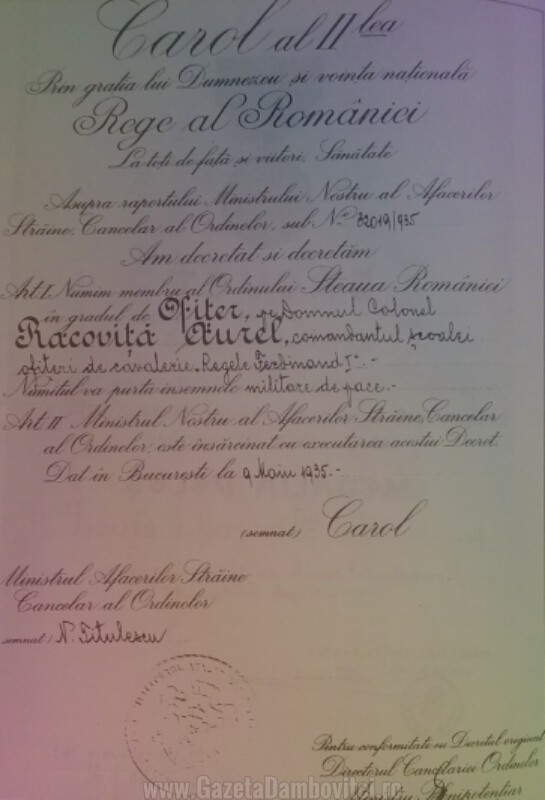 Carol al II lea
Prin gratia lui Dumnezeu si vointa naţională
Rege al României
La toţi de faţă si viitori, Sănătate
Asupra raportului Ministrului Nostru al Afacerilor
Străine, Cancelar al Ordinelor, sub No 82019/935
Am decretat si decretăm
Art I. Numim membru al Ordinului Steaua României
în gradul de Ofiter, pe Domnul Colonel
Racoviţă Aurel, comandantul şcoalei
ofiteri de cavalerie "Regele Ferdinand I".-
Numitul va purta însemnele militare de pace.-
Art II Ministrul Nostru al Afacerilor Străine, Cancelar
al Ordinelor, este însărcinat cu executarea acestui Decret.
Dat în Bucureşti la 9 Maiu 1935.-
(semnat) Carol
Ministrul Afacerilor Străine
Cancelar al Ordinelor
semnat) N. Titulescu
Pentru conformitate cu Decretul original
Directorul Cancelariei Ordinelor
Ministru Plenipotentiar
www.GazetaDambovitei.ro